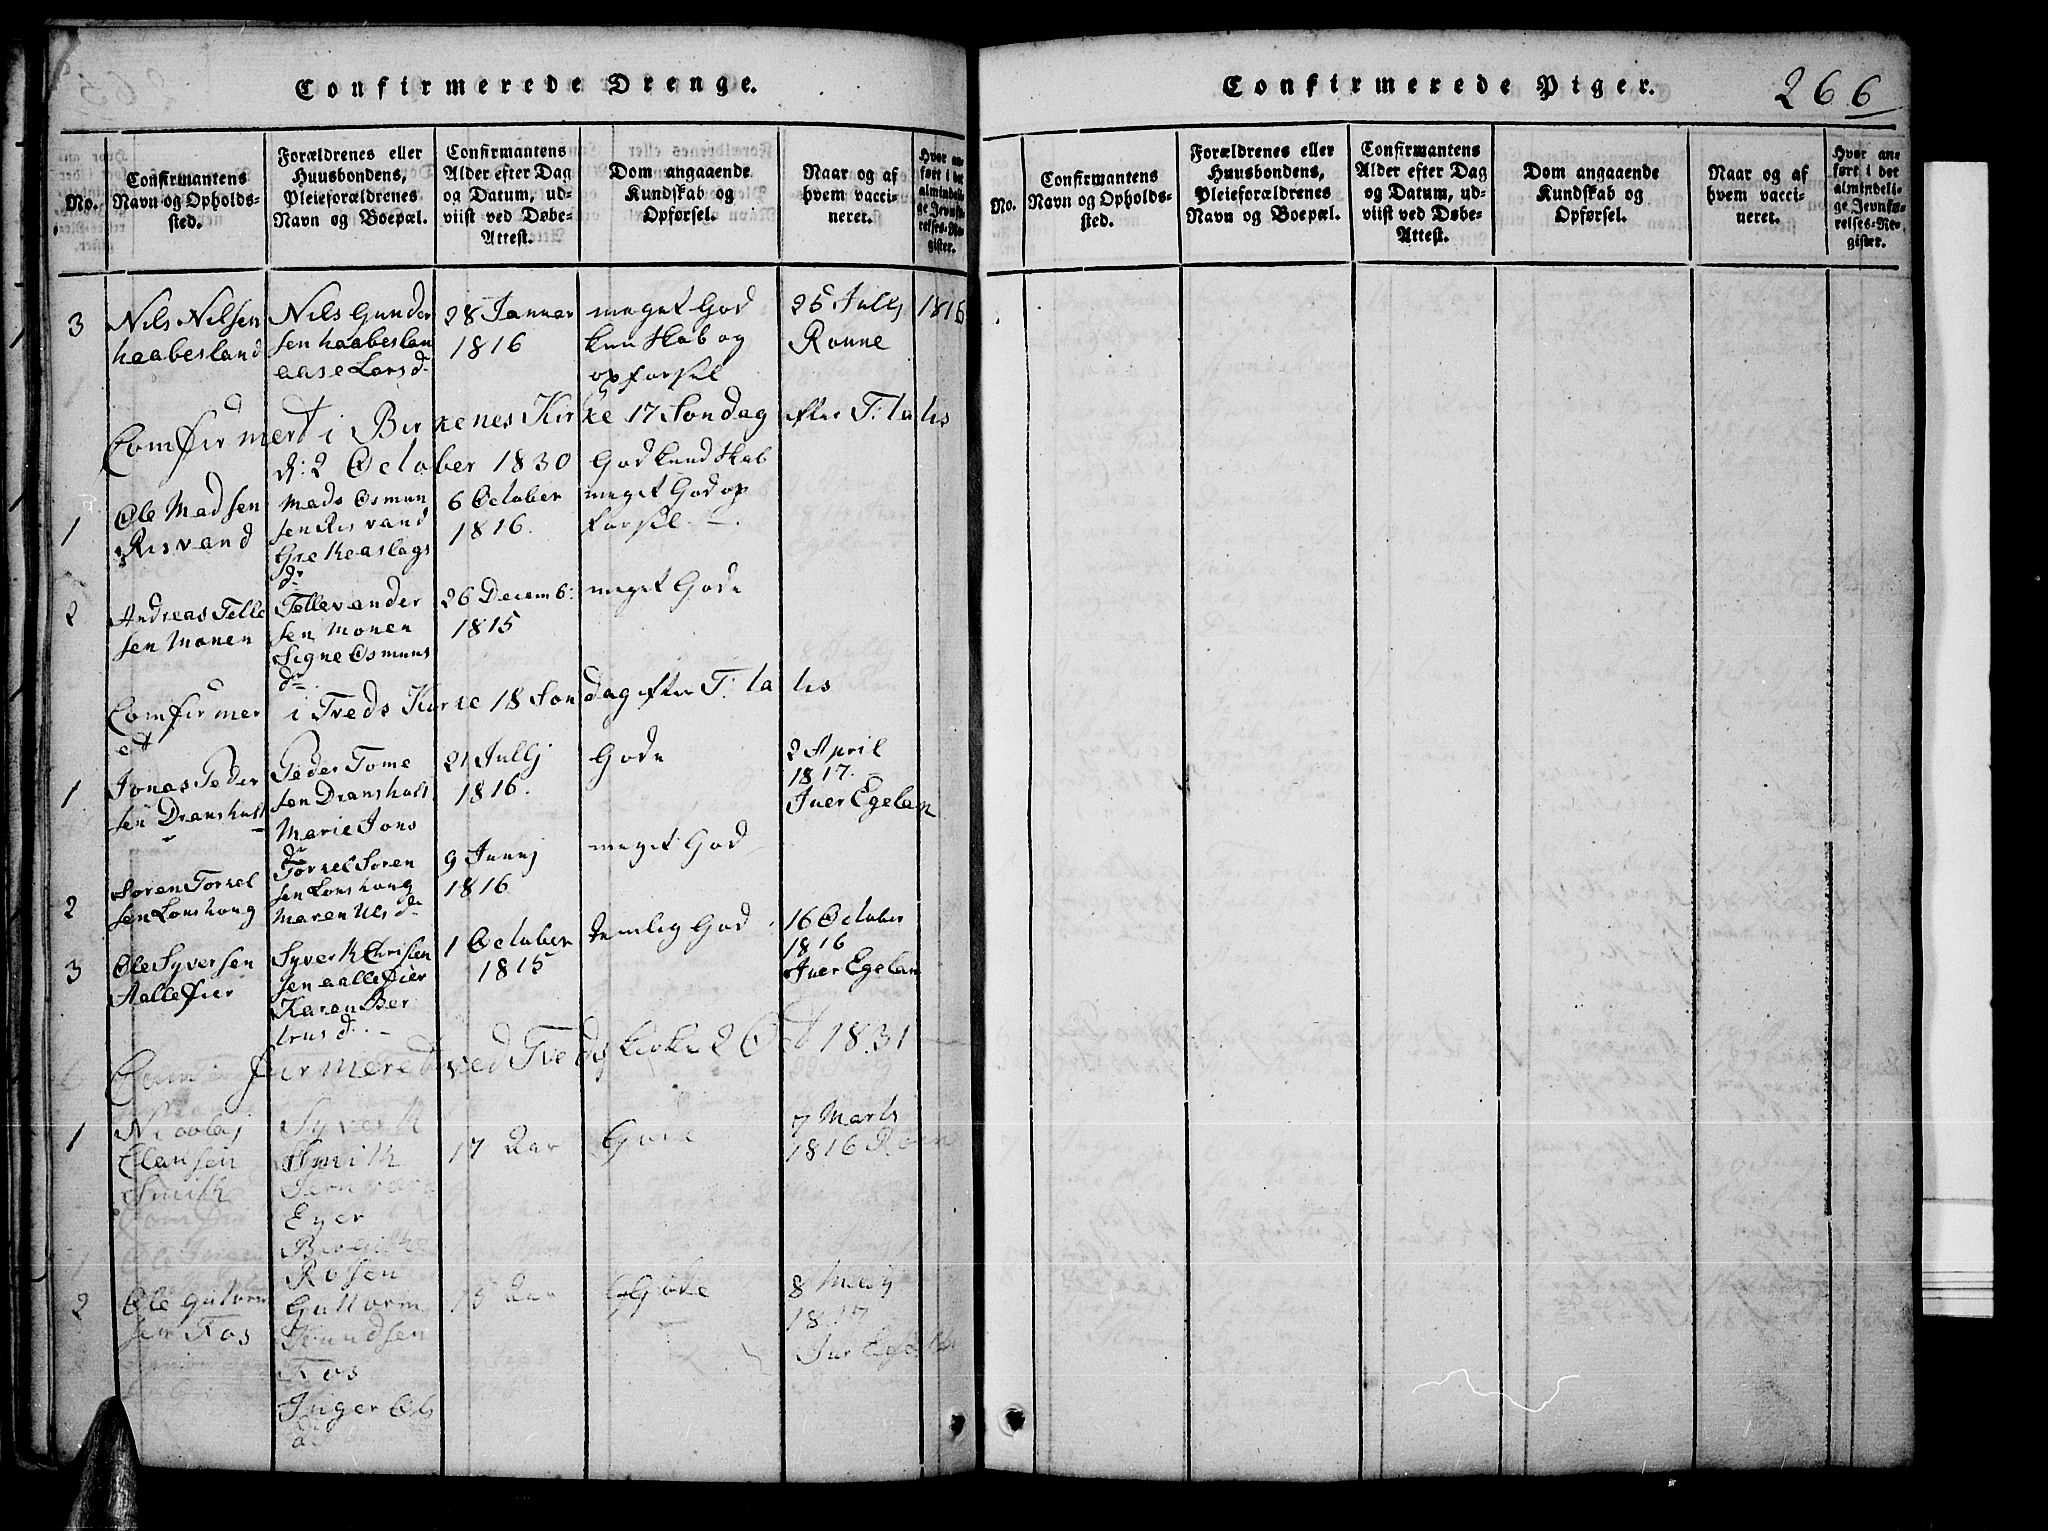 Confirmerede Drenge.
No.
Confirmantens
Navn og Opholds-
sted.
Forældrenes eller
Huusbondens,
Pleieforældrenes
Navn og Boepæl.
Confirmantens
Alder efter Dag
og Datum, ud-
viist ved Døbe-
Attest.
Dom angaaende
Kundskab og
Opførsel.
Naar og af
hvem vacci-
neret.
Hvor an-
ført i det
almindeli-
ge Jevnfø-
relses-Re-
gister.
3
Nils Nilsen
haabesland
Nils Gunder
sen haabeslan
aase Larsd
28 Januar
1816
meget God
kundskab og
opførsel
25 Julij 1816
Ronne
Comfirmert i Birkenes Kirke 17 Søndag efter T:
d: 2 October 1830
1
Ole Madsen
Risvand
Mads Osmun
sen Risvand
d
6 October
1816.
God kundskab
meget God op
førsel
2
Andreas Telle
sen Monen
Tellev ander
sen Monen
Signe Osmuns
dr
26 Decemb:
1815
meget Gode
Comfirmer i Tveds Kirke 18 Søndag efter T:
et
1
Jonas Peder
sen Dransholt
Peder Tome
sen Dransholt
Marie Jons
dr
21 Julij
1816.
Gode
2 April
1817.
Iver Egelan
2
Soren Torkel
sen
Torkel Soren
sen
Maren Ulsd
9 Junij
1816
meget God
3
Ole Syversen
Aallefier
Syvert Chrisen
sen aallefier
Karen Ber
d
1 October
1815
temlig God
16 October
1816
Iver Egelan
Comfirmeret ved Tveds kirke 2 Oct 1831
1
Nicolaj
Clausen
Smith
Syvert
Smith
Eger
Rosen
17 Aar
Gode
7 Marts
1816
2
Ole Gutorm
sen Fos
Guttorm
Knudsen
Fos
Inger Ols
d
15 Aar
Gode
8
1817
Confirmerede Piger.
266
No.
Confirmantens
Navn og Opholds-
sted.
Forældrenes eller
Huusbondens,
Pleieforældrenes
Navn og Boepæl.
Confirmantens
Alder efter Dag
og Datum, ud-
viist ved Døbe-
Attest.
Dom angaaende
Kundskab og
Opførsel.
Naar og af
hvem vacci-
neret.
Hvor an-
ført i det
almindeli-
ge Jevnfø-
relses-Re-
gister.